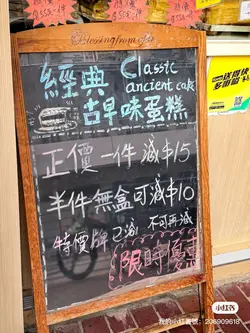 Blessing from
經典 Classic
ancient cake
古早味蛋糕
正價一件減$15
半件無盒可減$10
特價牌已減 不可再減
限時優惠
小红书
我的小红书号: 206909618